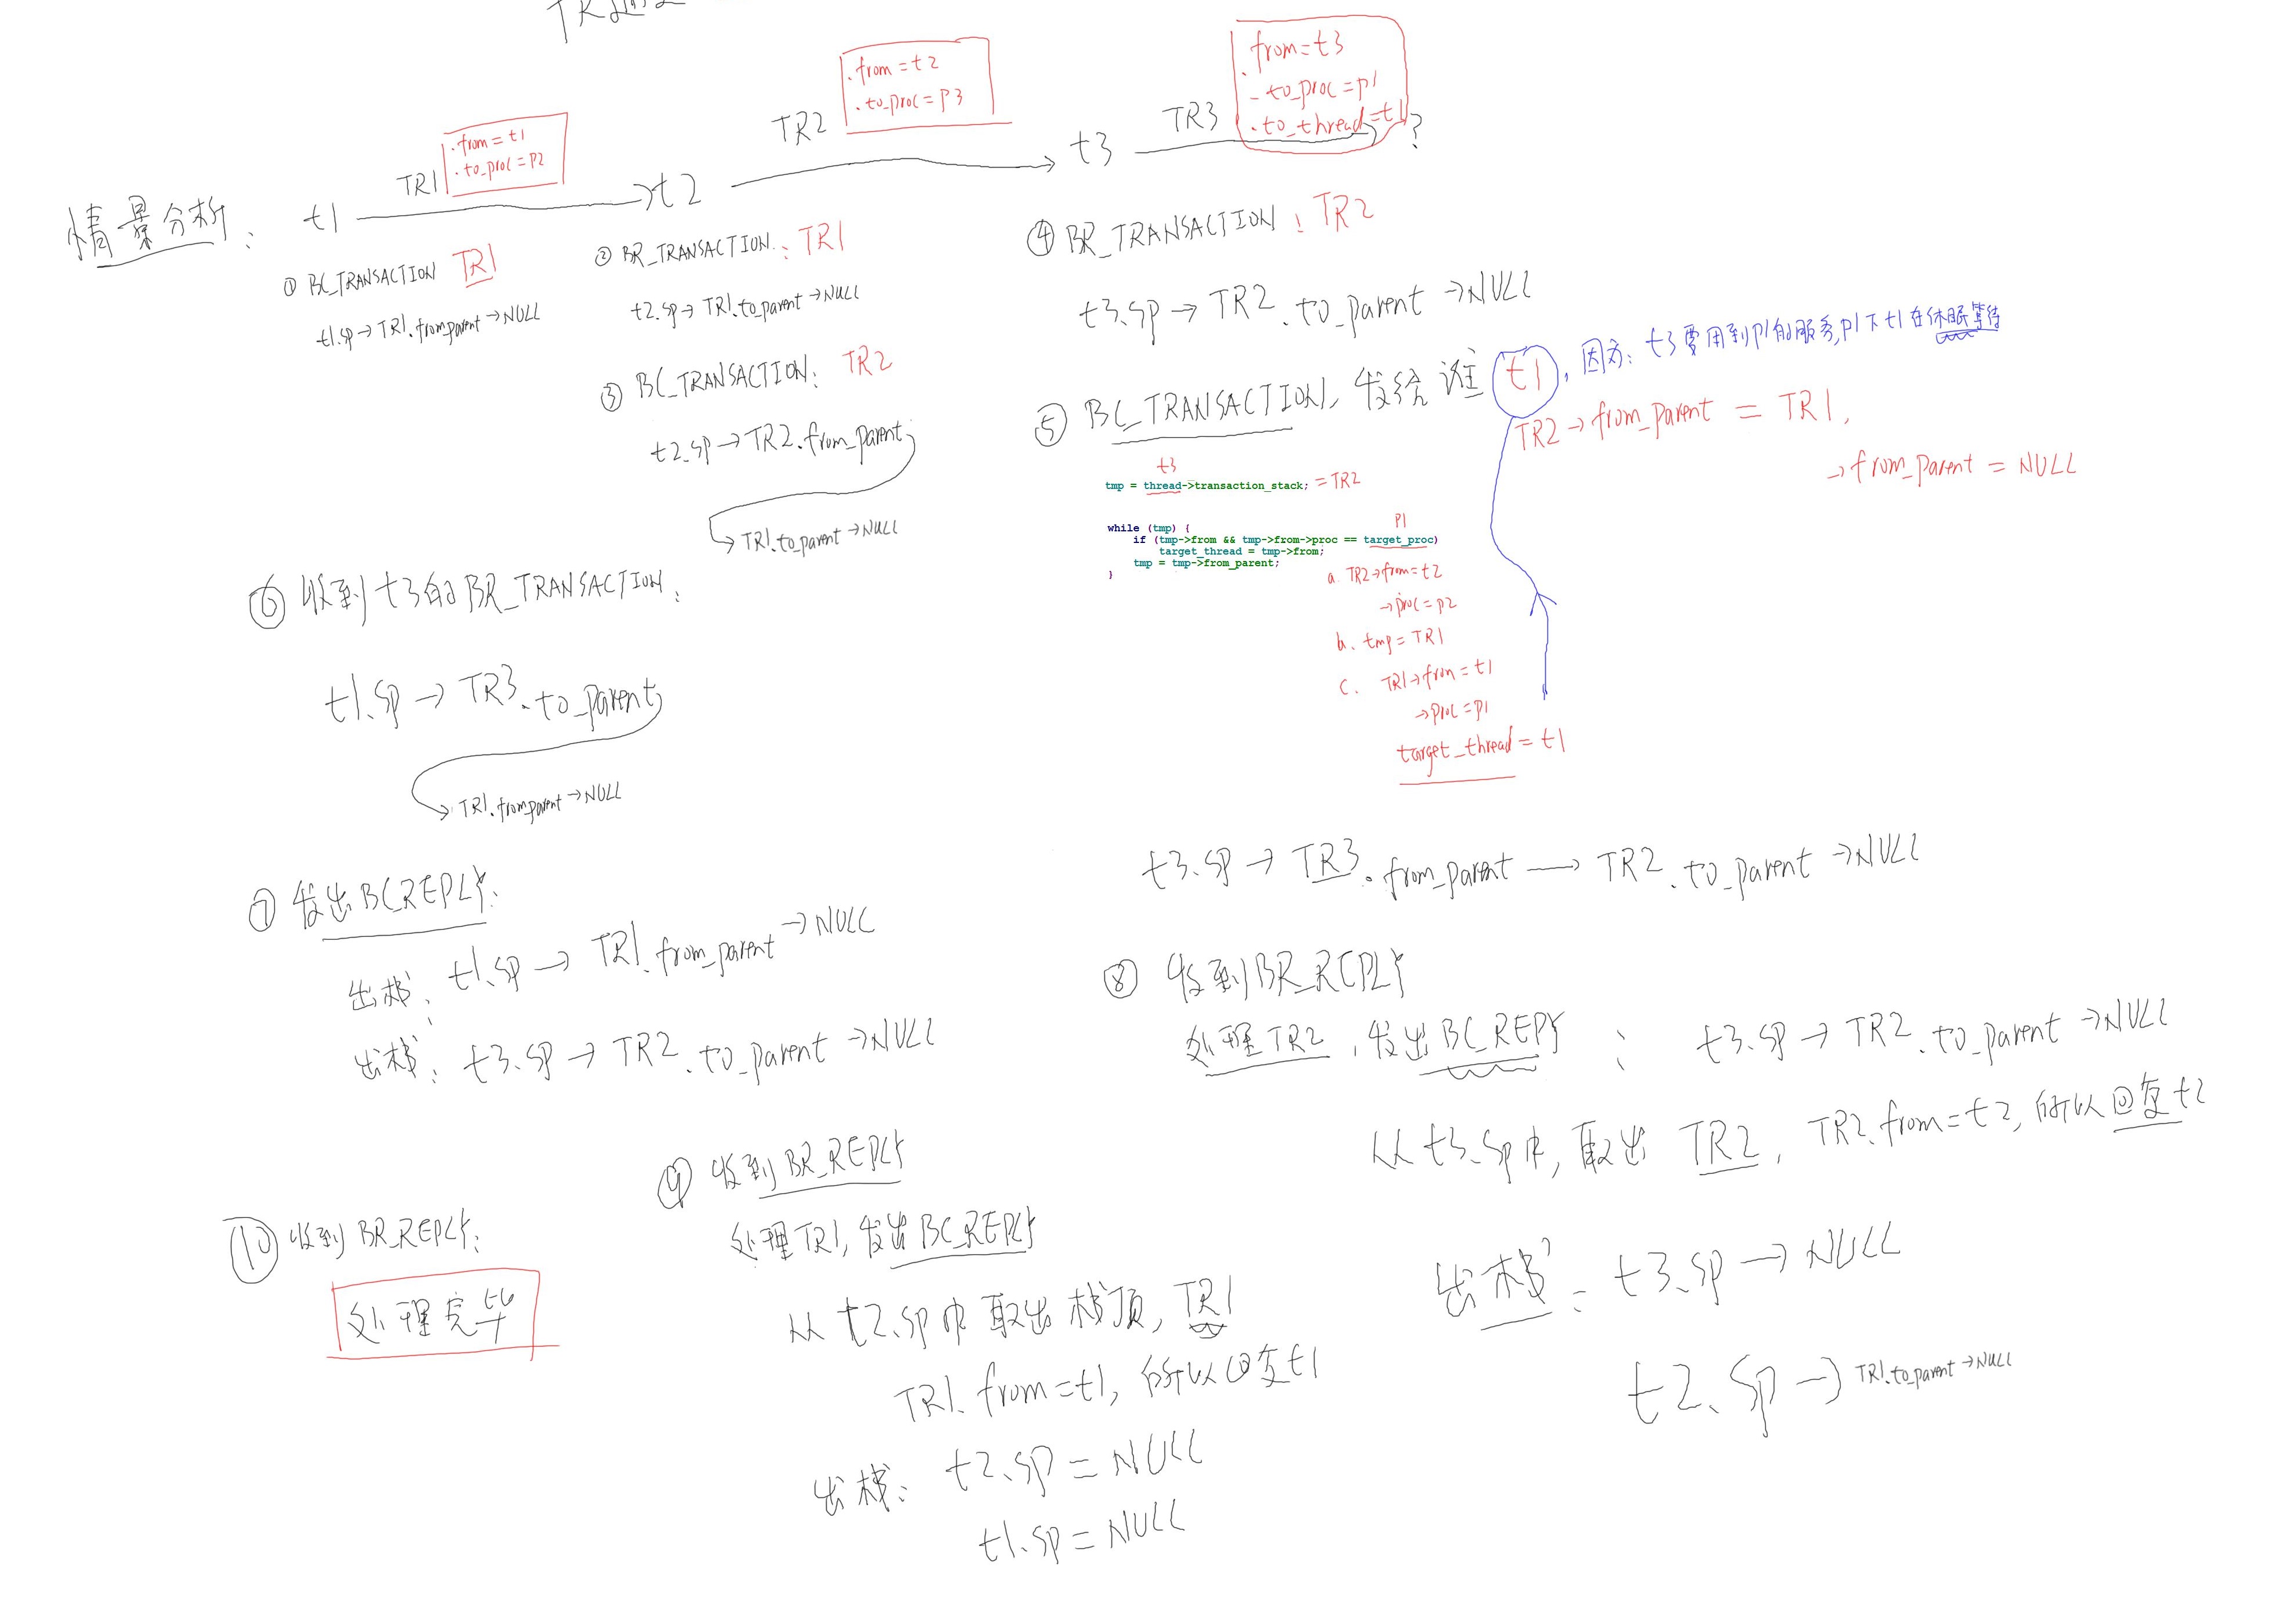 情景分析:
t1
TR1
.from=t1
.to_proc=p2
t2
TR2
.from=t2
.to_proc=p3
t3
TR3
.from=t3
.to_proc=p1
.to_thread=t1
?
① BC_TRANSACTION TR1
t1.sp→TR1.from_parent→NULL
② BR_TRANSACTION: TR1
t2.sp→TR1.to_parent→NULL
③ BC_TRANSACTION: TR2
t2.sp→TR2.from_parent
→TR1.to_parent→NULL
④ BR_TRANSACTION: TR2
t3.sp→TR2.to_parent→NULL
⑤ BC_TRANSACTION, 发给谁 t1, 因为: t3要用到p1的服务,p1下t1在休眠等待
TR2→from_parent = TR1,
→from_parent = NULL
t3
tmp = thread->transaction_stack; =TR2
p1
while (tmp) {
if (tmp->from && tmp->from->proc == target_proc)
target_thread = tmp->from;
tmp = tmp->from_parent;
}
a. TR2→from=t2
→proc=p2
b. tmp=TR1
c. TR1→from=t1
→proc=p1
target_thread=t1
t3.sp→TR3.from_parent—TR2.to_parent→NULL
⑥ 收到t3的BR_TRANSACTION:
t1.sp→TR3.to_parent
→TR1.from_parent→NULL
⑦ 发出BC_REPLY:
出栈: t1.sp→TR1.from_parent→NULL
出栈: t3.sp→TR2.to_parent→NULL
⑧ 收到BR_REPLY
处理TR2, 发出BC_REPY : t3.sp→TR2.to_parent→NULL
从t3.sp中, 取出 TR2, TR2.from=t2, 所以回复t2
出栈: t3.sp→NULL
t2.sp→TR1.to_parent→NULL
⑨ 收到BR_REPLY
处理TR1, 发出BC_REPLY
从t2.sp中取出栈顶, TR1
TR1.from=t1, 所以回复t1
出栈: t2.sp=NULL
t1.sp=NULL
⑩ 收到BR_REPLY:
处理完毕